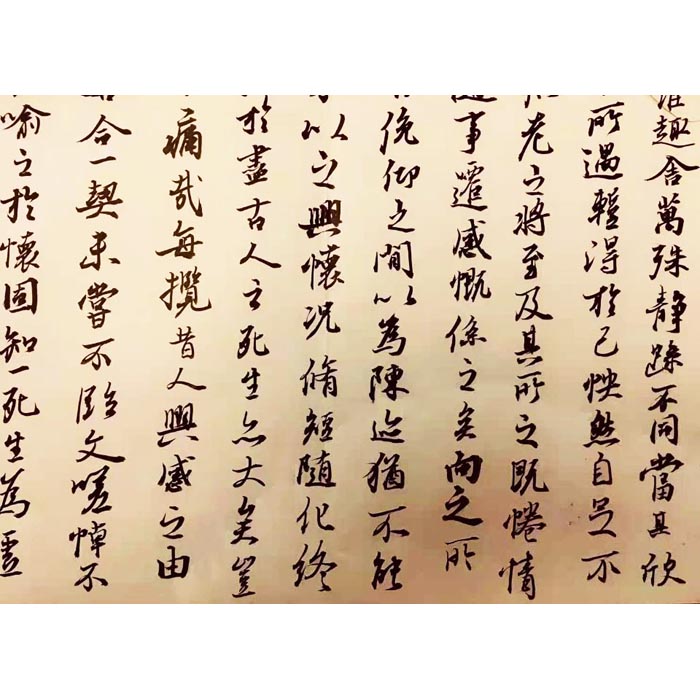 趣舍萬殊靜躁不同當其欣
所遇輒得於己怏然自足不
老之將至及其所之既惓情
事遷感慨係之矣向之所
俛仰之間以為陳迹猶不能
以之興懷況脩短隨化終
於盡古人云死生亦大矣豈
痛哉每攬昔人興感之由
合一契未嘗不臨文嗟悼不
喻之於懷固知一死生為虛